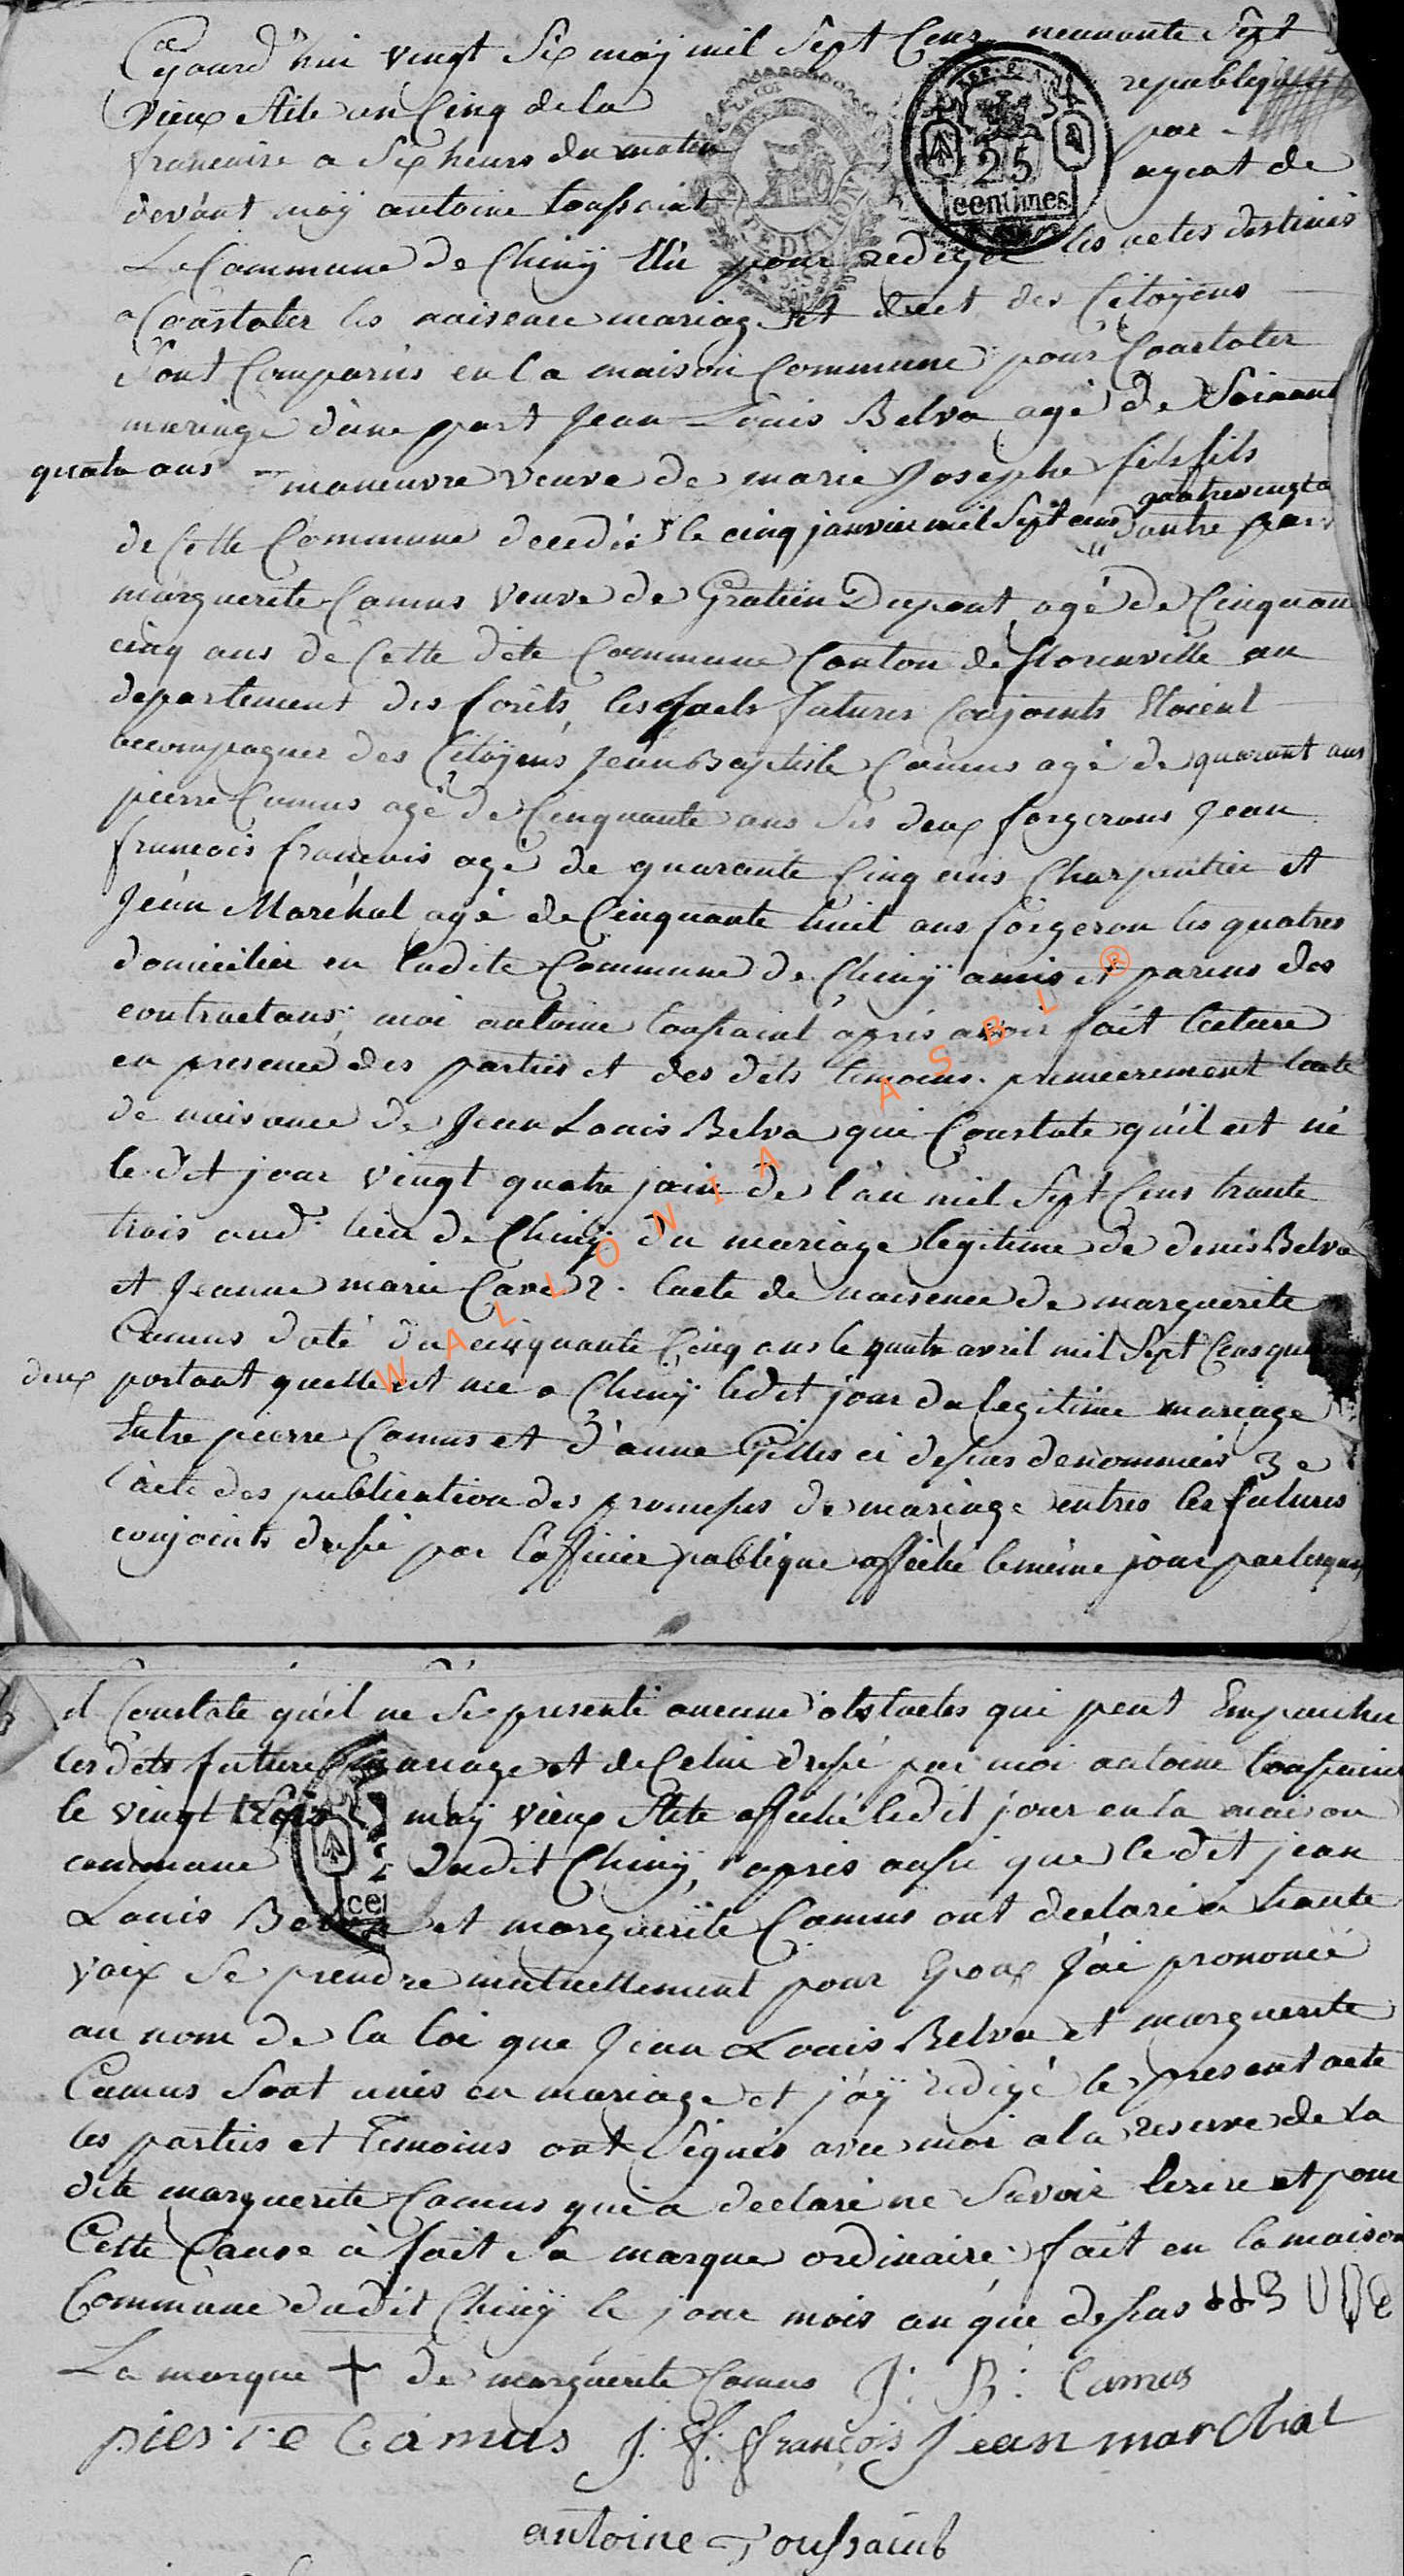 Cejourd'hui vingt Six maÿ mil Sept Cens nennante Sept
vieux Stile an Cinq de la republique
francaise a Six heurs du matin par
devant moÿ antoine toussaint agent de
La Commune de Chinÿ Elu pour rediger les actes destinés
a Constater les naisence mariage et decet des Citoÿens
Sont Comparus en la maison Commune pour Constater
mariage d'une part Jean Louis Belva agé de Soixant
quatre ans maneuvre veuve de marie Josephe fils fils
quatrevingt
de Cette Commune decedée le cinq janvier mil Sept cens d'autre part
marguerite Camus veuve de Gratien Dupont agé de Cinquant
cinq ans de Cette dite Commune Canton de florenville au
departement des forêts, lesquels futures Conjoints Etoient
accompagner des Citoÿens Jean Baptiste Camus agé de quarant ans
pierre Camus agé de Cinquante ans les deux forgerons Jean
francois francois agé de quarante Cinq ans Charpentier et
Jean Maréhal agé de Cinquante huit ans forgeron les quatres
domicilier en ladite Commune de Chinÿ amis et parens des
contractans; moi antoine toussaint après avoir fait lecture
en presence des parties et des dits temoins. premierement lacte
de naisance de Jean Louis Belva qui Constate qu'il est né
le dit jour vingt quatre juin de l'an mil Sept Cens trante
trois aud. lieu de Chinÿ du mariage legitime de denis Belva
et Jeanne marie Cave 2. lacte de naisence de marguerite
Camus daté du cinquante Cinq ans le quatre avril mil Sept Cens
deux portant quelle est née a Chinÿ ledit jour du legitime mariage
Entre pierre Camus et d'anne Gilles ci dessus denommées 3e
l'acte des publication des promesses de mariage entres les futures
conjoints dressé par l'officier publique affiché le même jour par lesquels
WALLONIA ASBL ®
25
centimes
il Constate qu'il ne Se presente aucune obstacles qui peut Empaicher
les dits future mariage et de Celui dressé par moi antoine toussaint
le vingt maÿ vieux Stile affiché ledit jour en la maison
commune dudit Chinÿ, après aussi que ledit jean
Louis Belva et marguerite Camus ont declaré a haute
voix Se prendre mutuellement pour Epoux J'ai prononcé
au nom de la loi que Jean Louis Belva et marguerite
Camus Sont unis en mariage et j'aÿ redigé le present acte
les parties et temoins ont Signés avec moi a la reserve de La
dite marguerite Camus qui a declaré ne Savoir Ecrire et pour
Cette Cause à fait Sa marque ordinaire: fait en la maison
Commune dudit Chinÿ le jour mois an que dessus
La marque + de marguerite Camus J: B: Camus
pierre Camus J: f: françois Jean marchal
antoine Toussaint